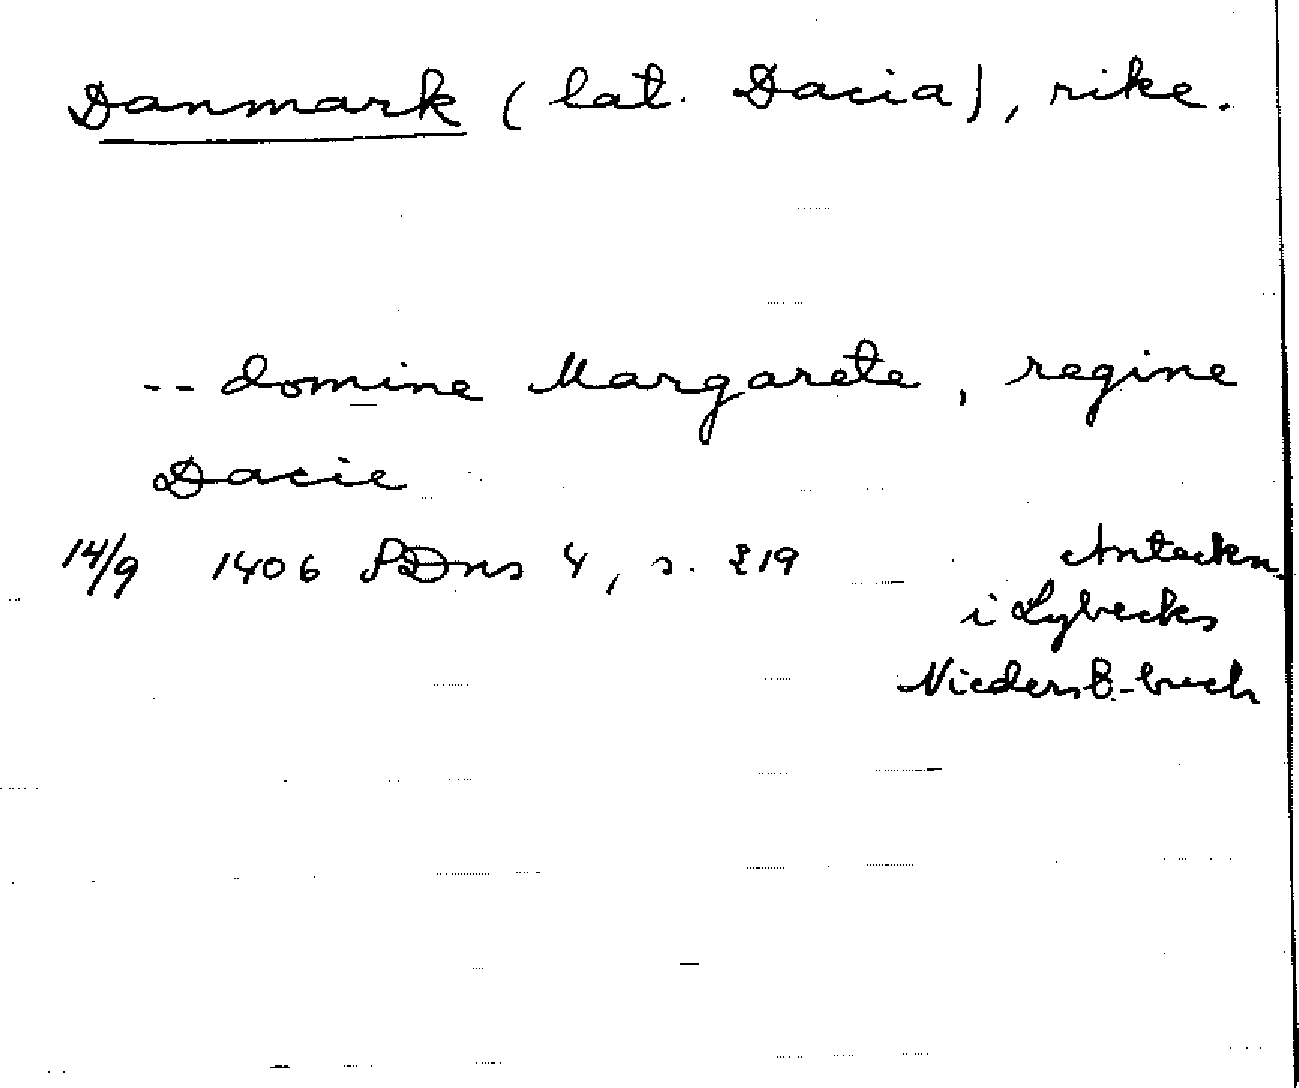 Danmark (lat. Dacia), rike.
-- domine Margarete, regine
Dacie
14/9 1406 SDns 4, s. 219 Anteckn.
i Lybecks
Nieders B.-buch